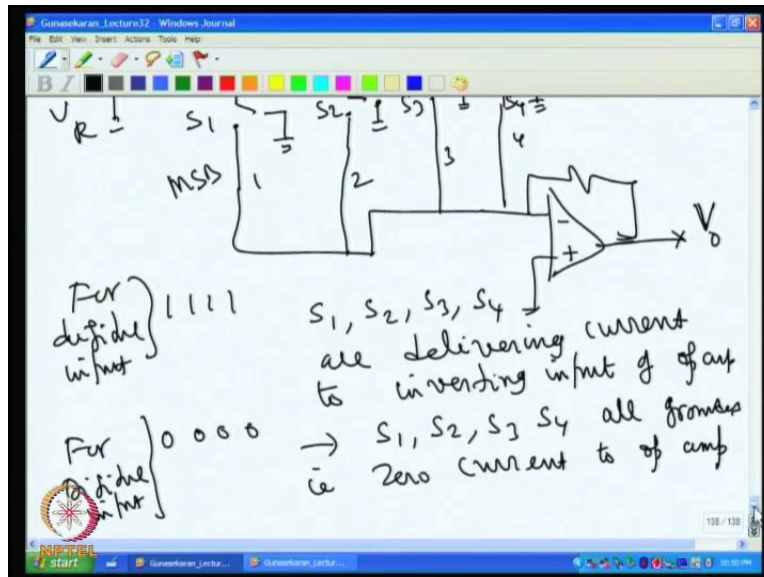 Gunasekaran_Lecture32 - Windows Journal
File Edit View Insert Actions Tools Help
B I
V R S1 S2 S3 S4
MSB 1 2 3 4
- +
V0
For digital input } 1 1 1 1
S1, S2, S3, S4
are delivering current
to inverting input of op amp
For Digital input } 0 0 0 0 → S1, S2, S3 S4 all grounded
ie Zero current to op amp
138 / 138
NPTEL
start Gunasekaran_Lectur... Gunasekaran_Lectur... 10:50 PM